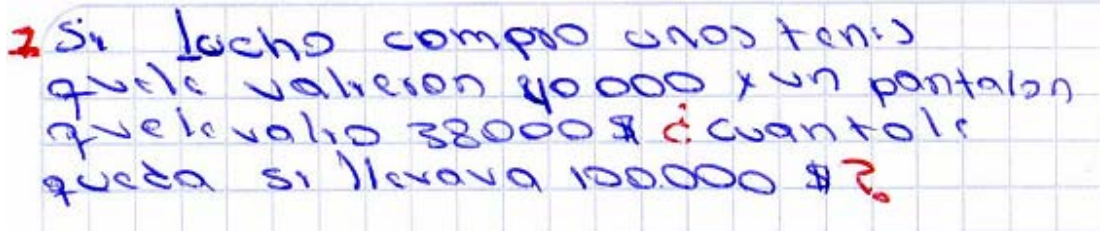 2 Si lucho compro unos tenis
quele valieron 40000 y un pantalon
quele valio 38000$ ¿cuantole
queda si llevava 100.000 $?